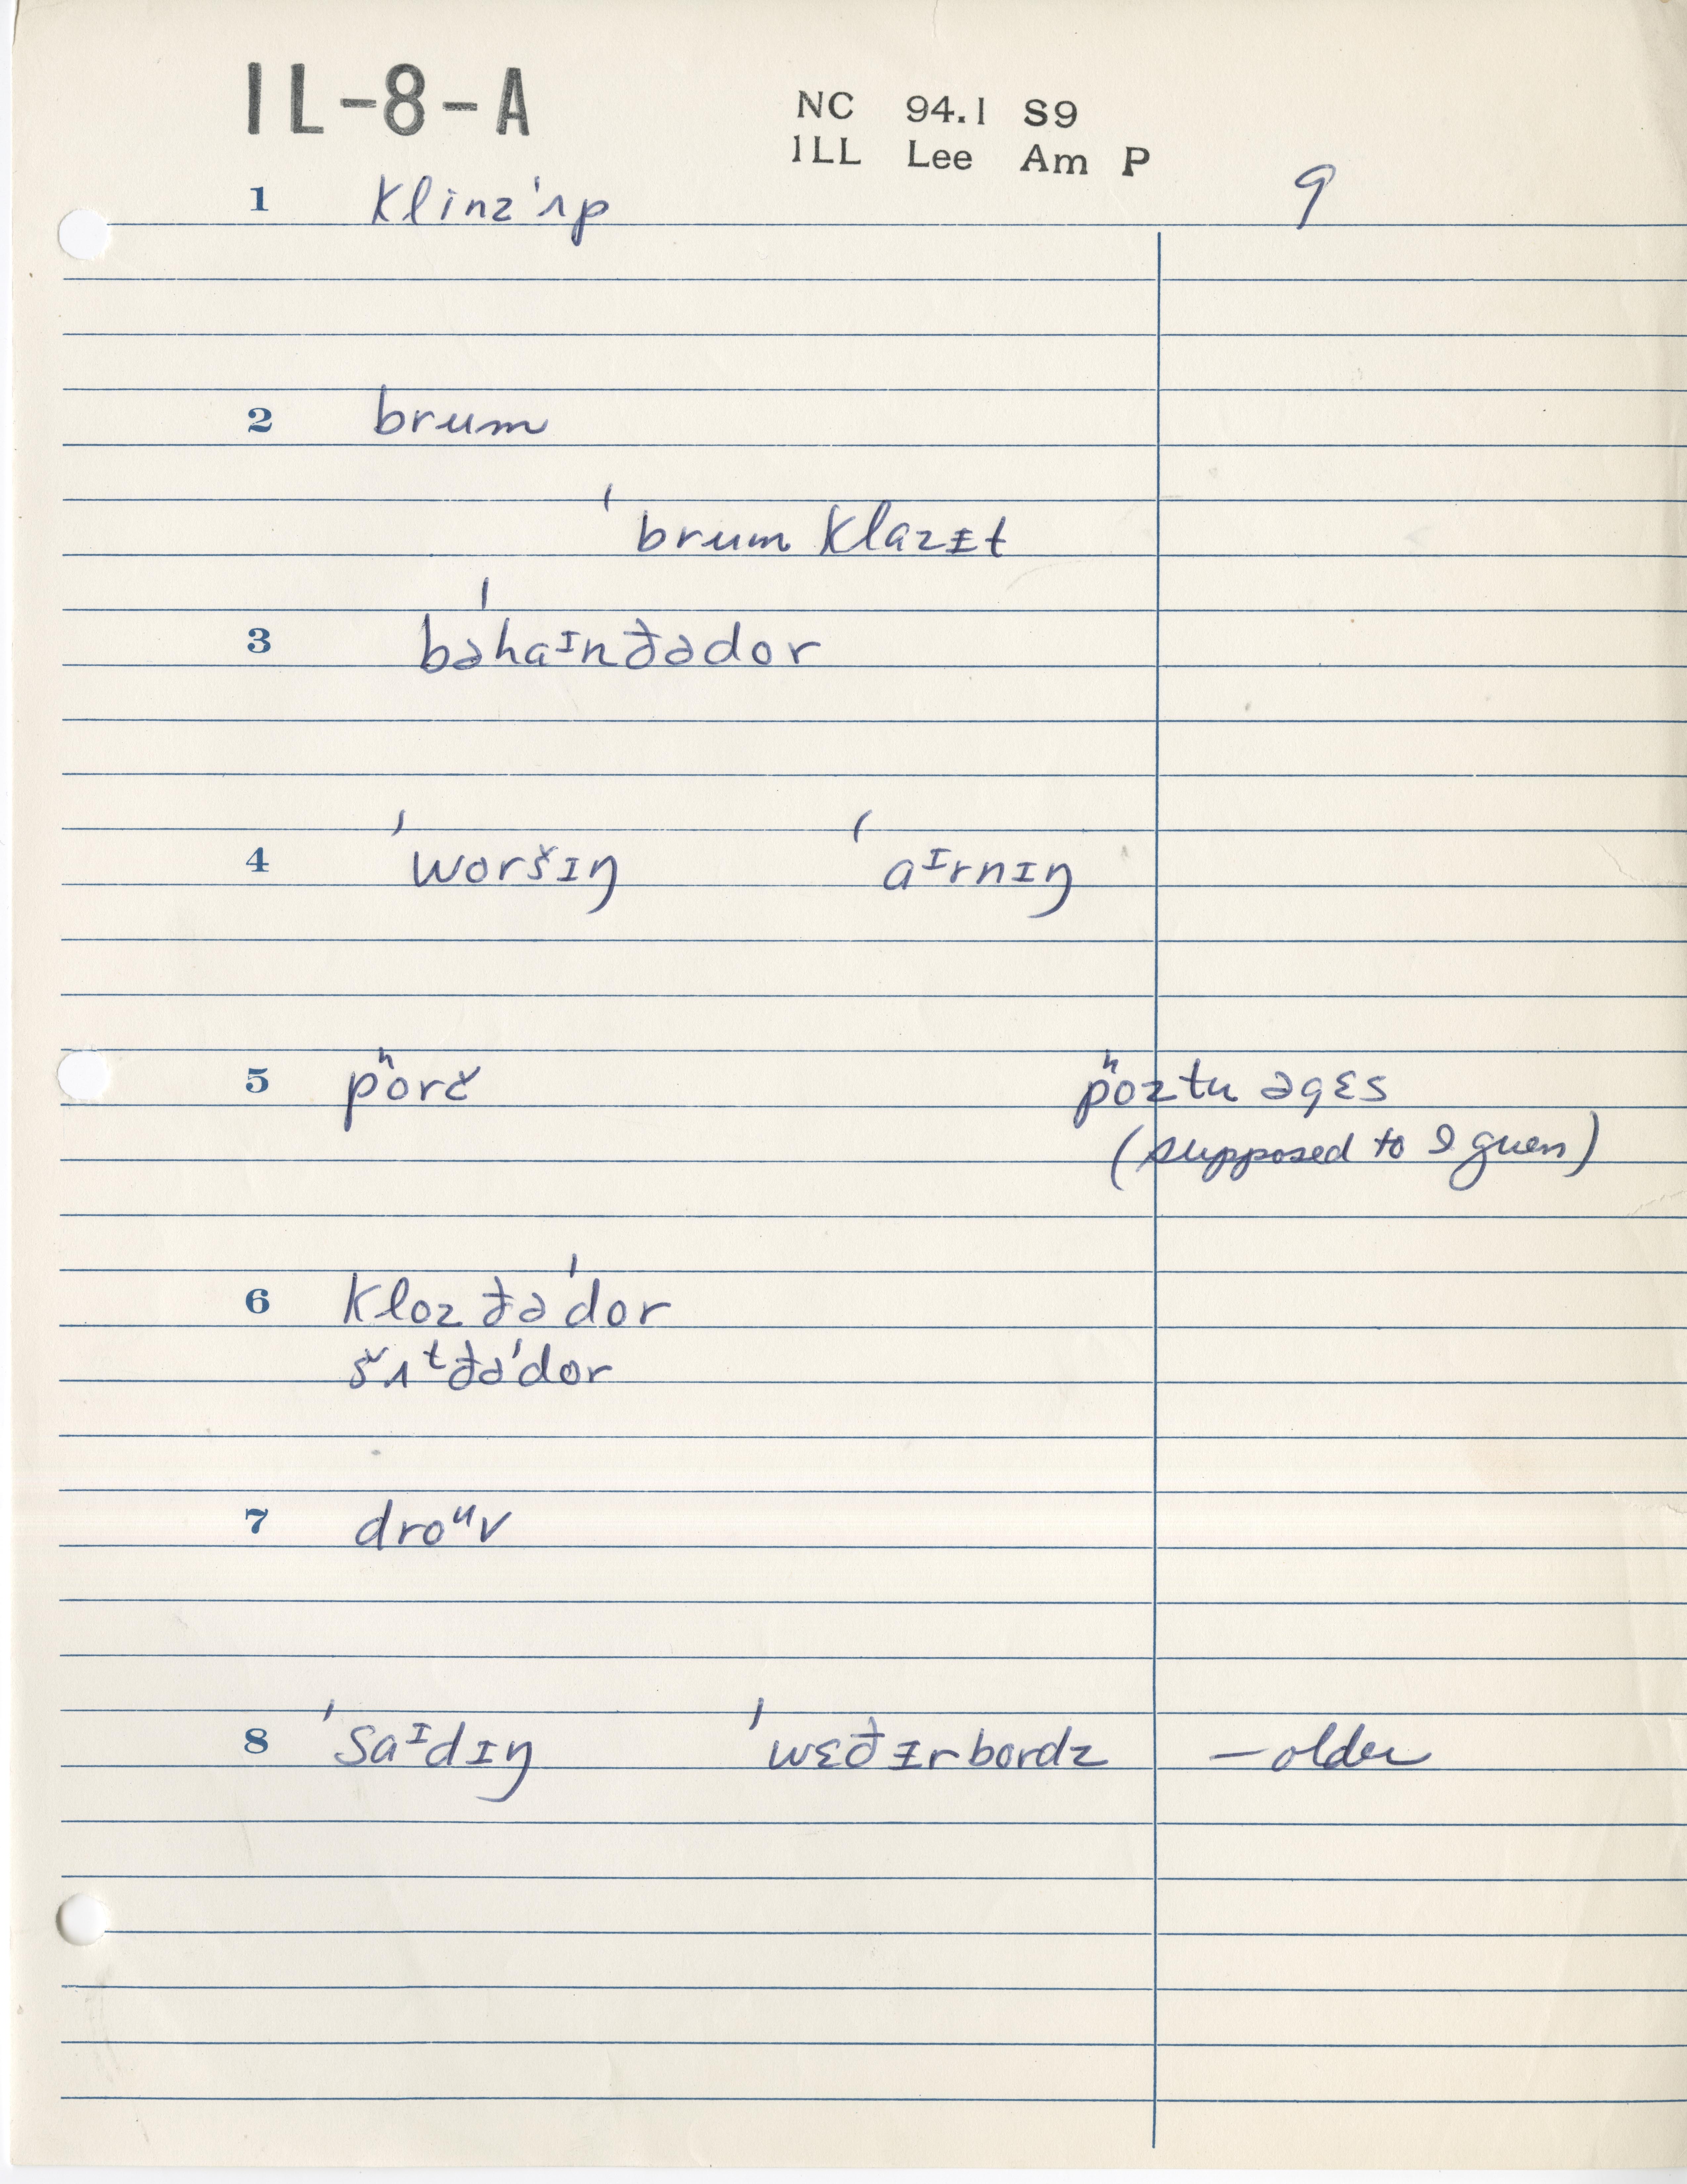 IL-8-A
NC 94.1 S9
ILL Lee Am P
9
1 klinz'ʌp
2 brum
'brum klazɪt
3 bə'haᶦnðədor
4 'woršɪŋ 'aᶦrnɪŋ
5 pʰorč pʰoztu əgɛs
(supposed to I guess)
6 kloz ðə'dor
šʌᵗðə'dor
7 droᵘv
8 'saᶦdɪŋ 'wɛðɪrbordz – older